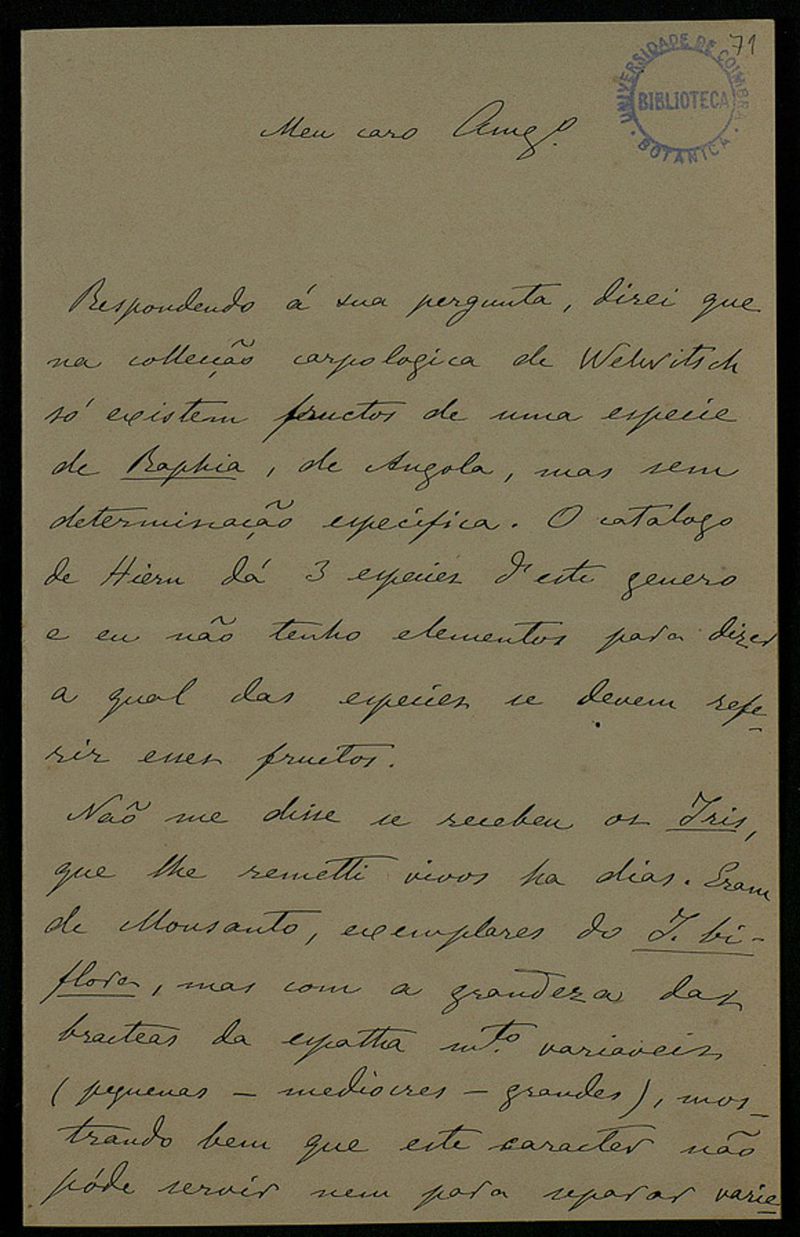 71
UNIVERSIDADE DE COIMBRA
BIBLIOTECA
BOTANICA
Meu caro Amg.º
Respondendo á sua pergunta, direi que
na collecção carpologica de Welwitsch
só existem fructos de uma especie
de Raphia, de Angola, mas sem
determinação especifica. O catalogo
de Hiern dá 3 especies d'este genero
e eu não tenho elementos para dizer
a qual das especies se devem refe-
rir esses fructos.
Naõ me disse se recebeu os Iris,
que lhe remetti vivos ha dias. Eram
de Monsanto, exemplares do I. bi-
flora, mas com a grandeza das
bracteas da espatha mt.º variaveis
(pequenas – mediocres – grandes), mos-
trando bem que este caracter não
póde servir nem para separar varie